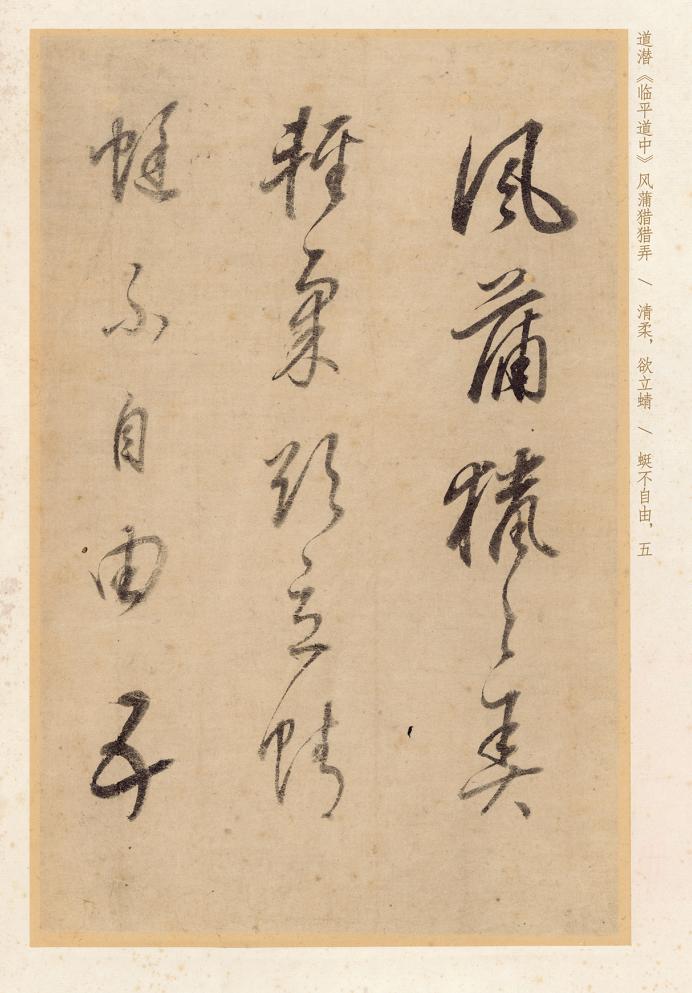 道潜《临平道中》风蒲猎猎弄 / 清柔，欲立蜻 / 蜓不自由，五
風蒲獵々弄
輕柔欲立蜻
蜓不自由五